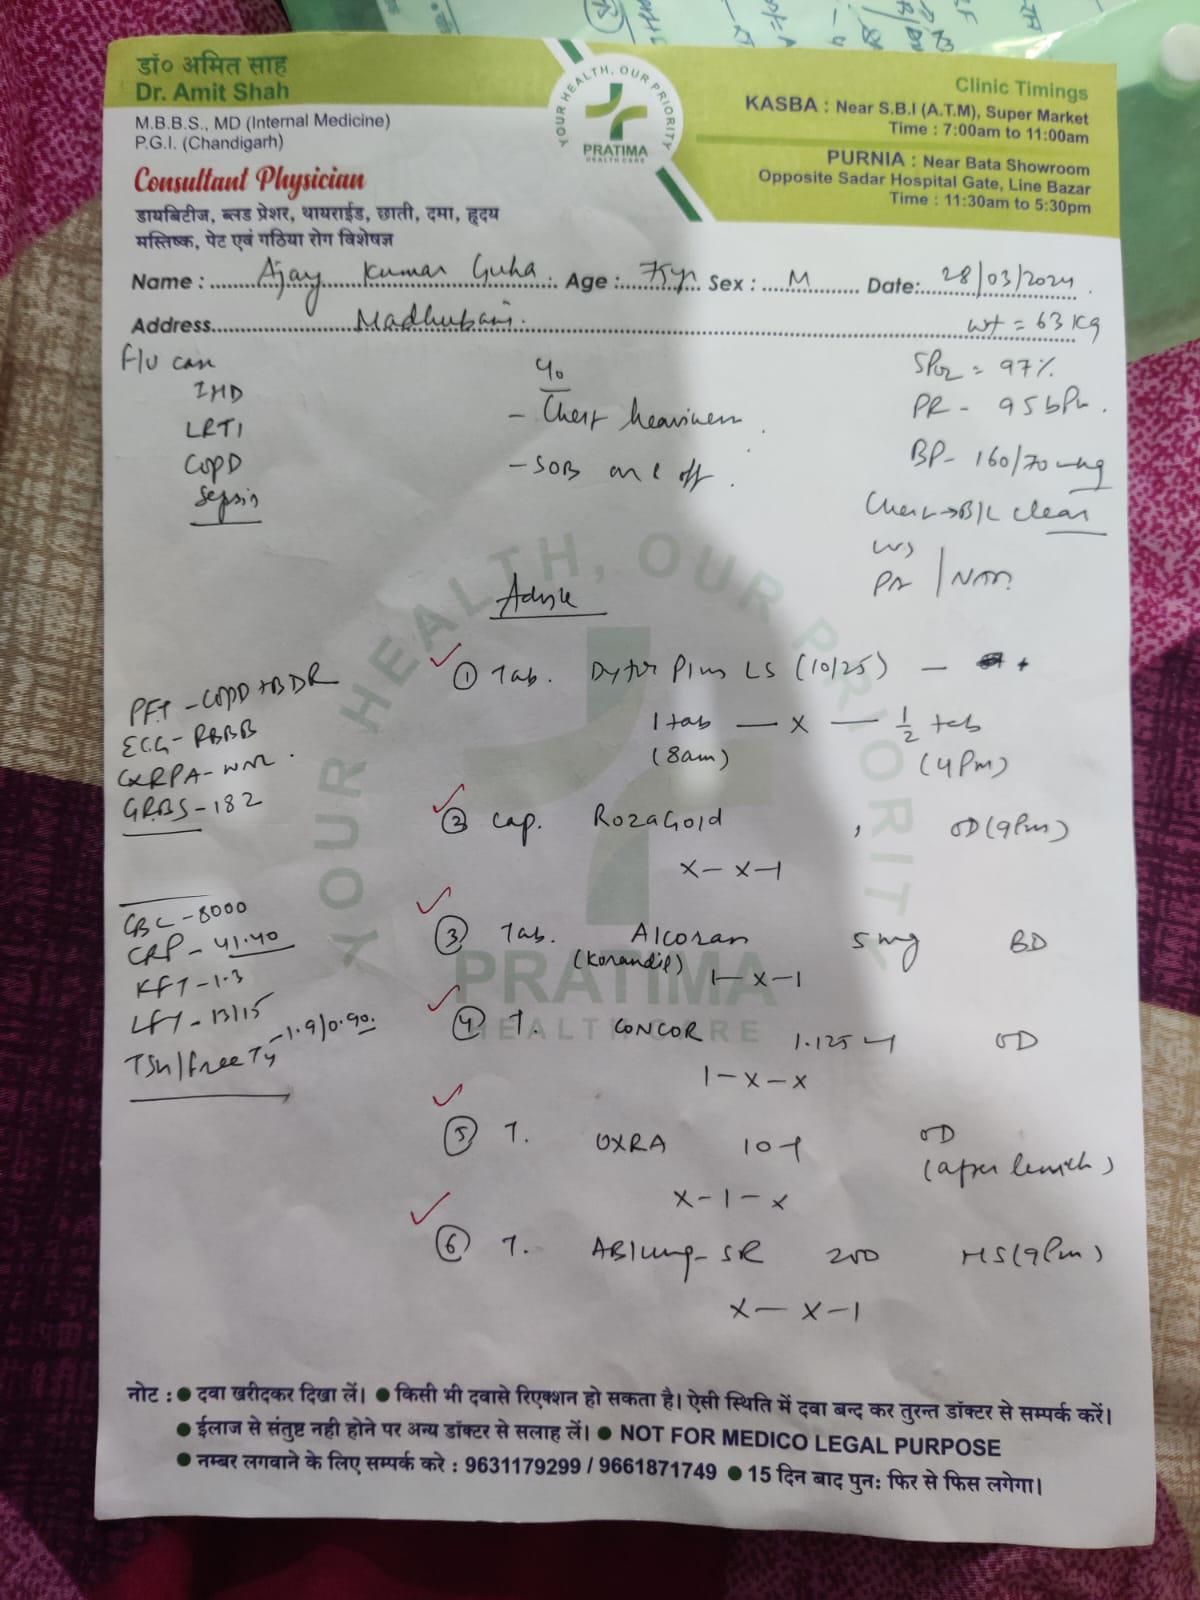 डॉ० अमित साह
Dr. Amit Shah
M.B.B.S., MD (Internal Medicine)
P.G.I. (Chandigarh)
Consultant Physician
डायबिटीज, ब्लड प्रेशर, थायराईड, छाती, दमा, हृदय
मस्तिष्क, पेट एवं गठिया रोग विशेषज्ञ
YOUR HEALTH, OUR PRIORITY
PRATIMA
HEALTH CARE
Clinic Timings
KASBA : Near S.B.I (A.T.M), Super Market
Time : 7:00am to 11:00am
PURNIA : Near Bata Showroom
Opposite Sadar Hospital Gate, Line Bazar
Time : 11:30am to 5:30pm
Name : Ajay Kumar Guha Age : 75yr Sex : M Date: 28/03/2024
Address Madhubani
wt = 63 Kg
F/U case
IHD
LRTI
COPD
Sepsis
c/o
- Chest heaviness
- SOB on & off
SPO2 = 97%
PR - 95 bpm
BP - 160/70 mmHg
Chest → B/L clear
PA / NAD
Advice
PFT - COPD + BDR
ECG - RBBB
CXRPA - WNL
GRBS - 182
CBC - 8000
CRP - 41.40
KFT - 1.3
LFT - 13/15
TSH/free T4 - 1.9/0.90
① Tab. Dytor Plus LS (10/25) —
1 tab — x — 1/2 tab
(8am) (4Pm)
② Cap. RozaGold , OD (9Pm)
x — x — 1
③ Tab. Alcoran 5 mg BD
(Korandil) 1 — x — 1
④ T. CONCOR 1.125 OD
1 — x — x
⑤ T. OXRA 10 OD
(after lunch)
x — 1 — x
⑥ T. ABlung-SR 200 HS (9Pm)
x — x — 1
YOUR HEALTH, OUR PRIORITY
PRATIMA
HEALTH CARE
नोट : ● दवा खरीदकर दिखा लें। ● किसी भी दवासे रिएक्शन हो सकता है। ऐसी स्थिति में दवा बन्द कर तुरन्त डॉक्टर से सम्पर्क करें।
● ईलाज से संतुष्ट नही होने पर अन्य डॉक्टर से सलाह लें। ● NOT FOR MEDICO LEGAL PURPOSE
● नम्बर लगवाने के लिए सम्पर्क करे : 9631179299 / 9661871749 ● 15 दिन बाद पुन: फिर से फिस लगेगा।